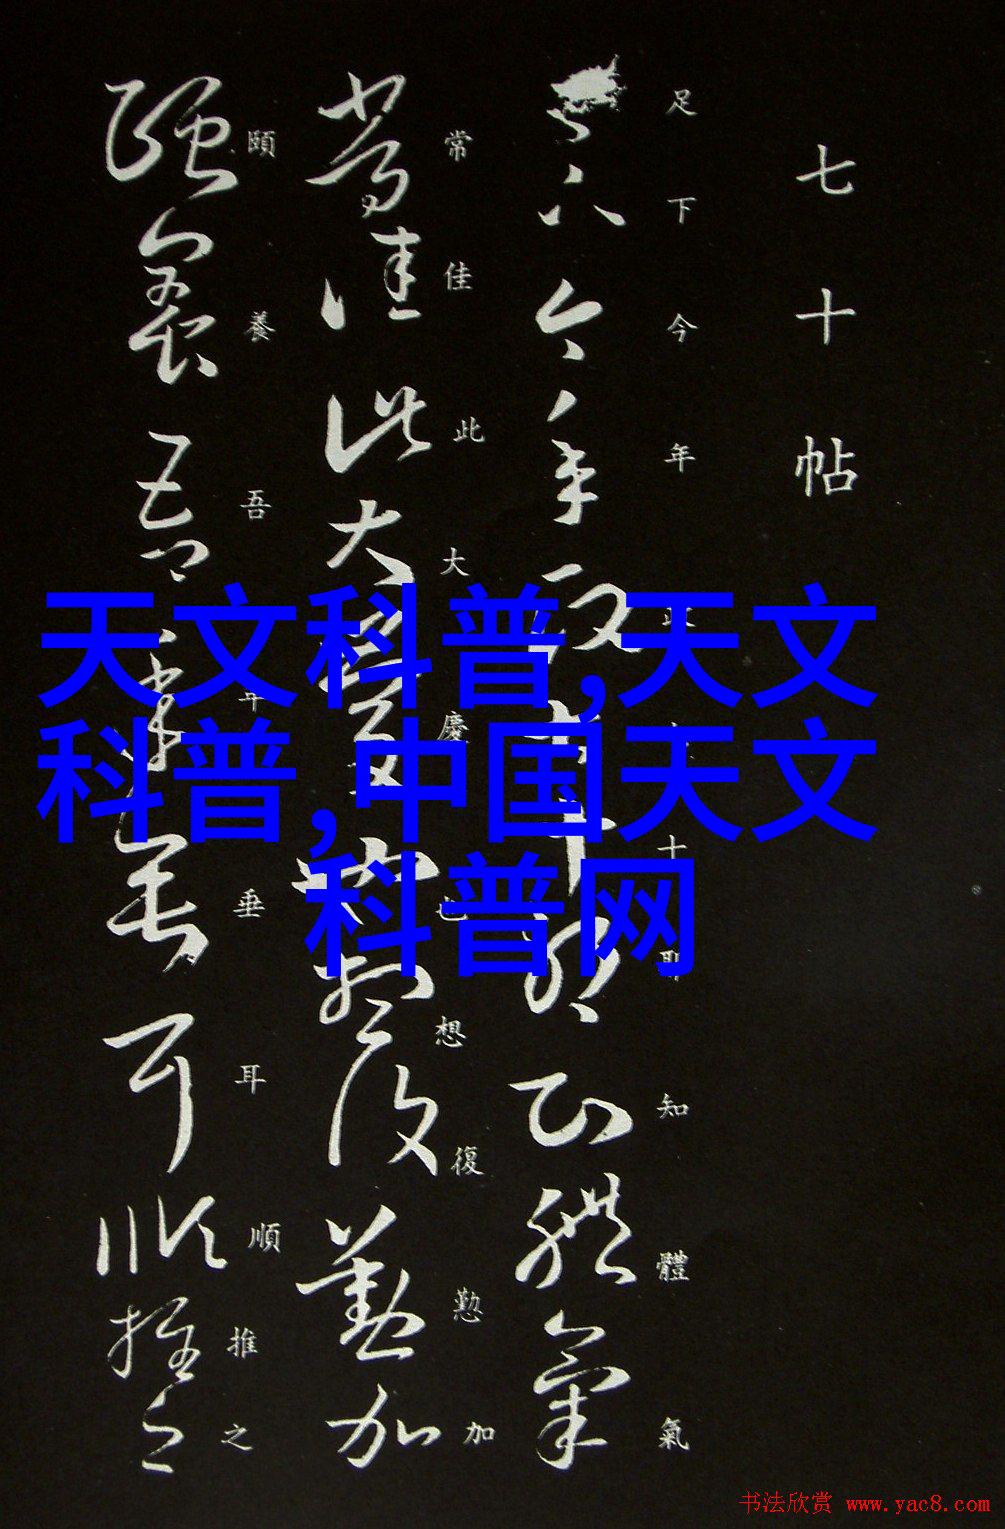 七十帖
足下今年政七十耶知體氣
常佳此大慶也想復懃加
頤養吾年垂耳順推之
天文科普,天文
科普,中国天文
科普网
书法欣赏 www.yac8.com